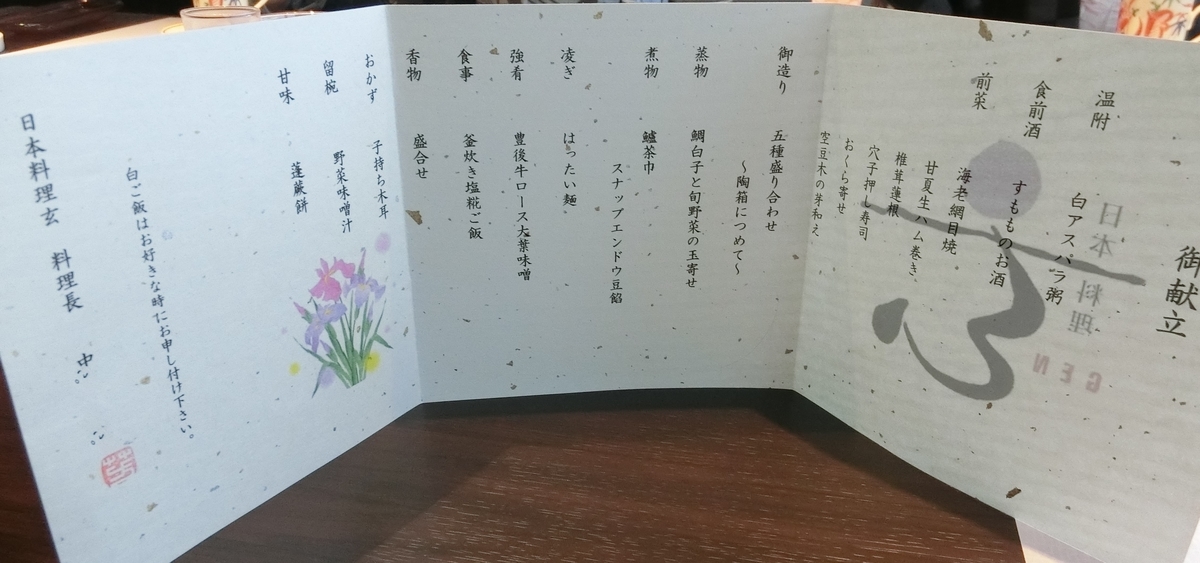 御献立
温附
白アスパラ粥
食前酒
すもものお酒
前菜
海老網目焼
甘夏生ハム巻き
椎茸蓮根
穴子押し寿司
おくら寄せ
空豆木の芽和え
御造り
五種盛り合わせ
～陶箱につめて～
蒸物
鯛白子と旬野菜の玉寄せ
煮物
鱸茶巾
スナップエンドウ豆餡
凌ぎ
はったい麺
強肴
豊後牛ロース大葉味噌
食事
釜炊き塩糀ご飯
香物
盛合せ
おかず
子持ち木耳
留椀
野菜味噌汁
甘味
蓬蕨餅
白ご飯はお好きな時にお申し付け下さい。
日本料理玄 料理長 中
日本料理
GEN